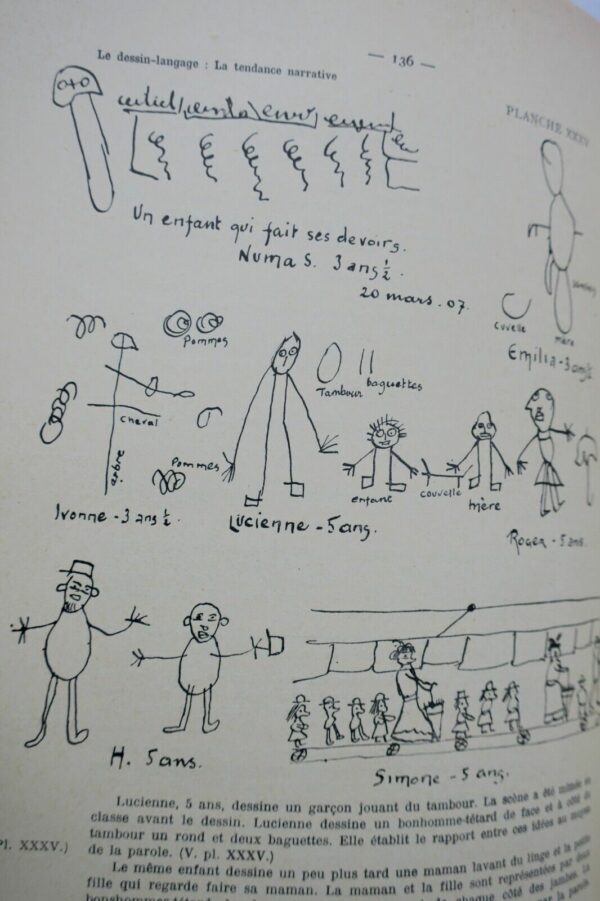 Le dessin-langage : La tendance narrative
— 136 —
PLANCHE XXXV
Un enfant qui fait ses devoirs.
Numa S. 3 ans ½.
20 mars. 07.
cuvelle
mère
Emilia-3 ans ½
Pommes
cheval
arbre
Pommes
Ivonne - 3 ans ½.
Tambour
baguettes
Lucienne - 5 ans.
enfant
couvelle
mère
Roger - 5 ans.
H. 5 ans.
Simone - 5 ans.
Lucienne, 5 ans, dessine un garçon jouant du tambour. La scène a été mimée en
classe avant le dessin. Lucienne dessine un bonhomme-têtard de face et à côté du
tambour un rond et deux baguettes. Elle établit le rapport entre ces idées au moyen
Pl. XXXV.)
de la parole. (V. pl. XXXV.)
Le même enfant dessine un peu plus tard une maman lavant du linge et la petite
fille qui regarde faire sa maman. La maman et la fille sont représentées par deux
chaque côté des jambes. La